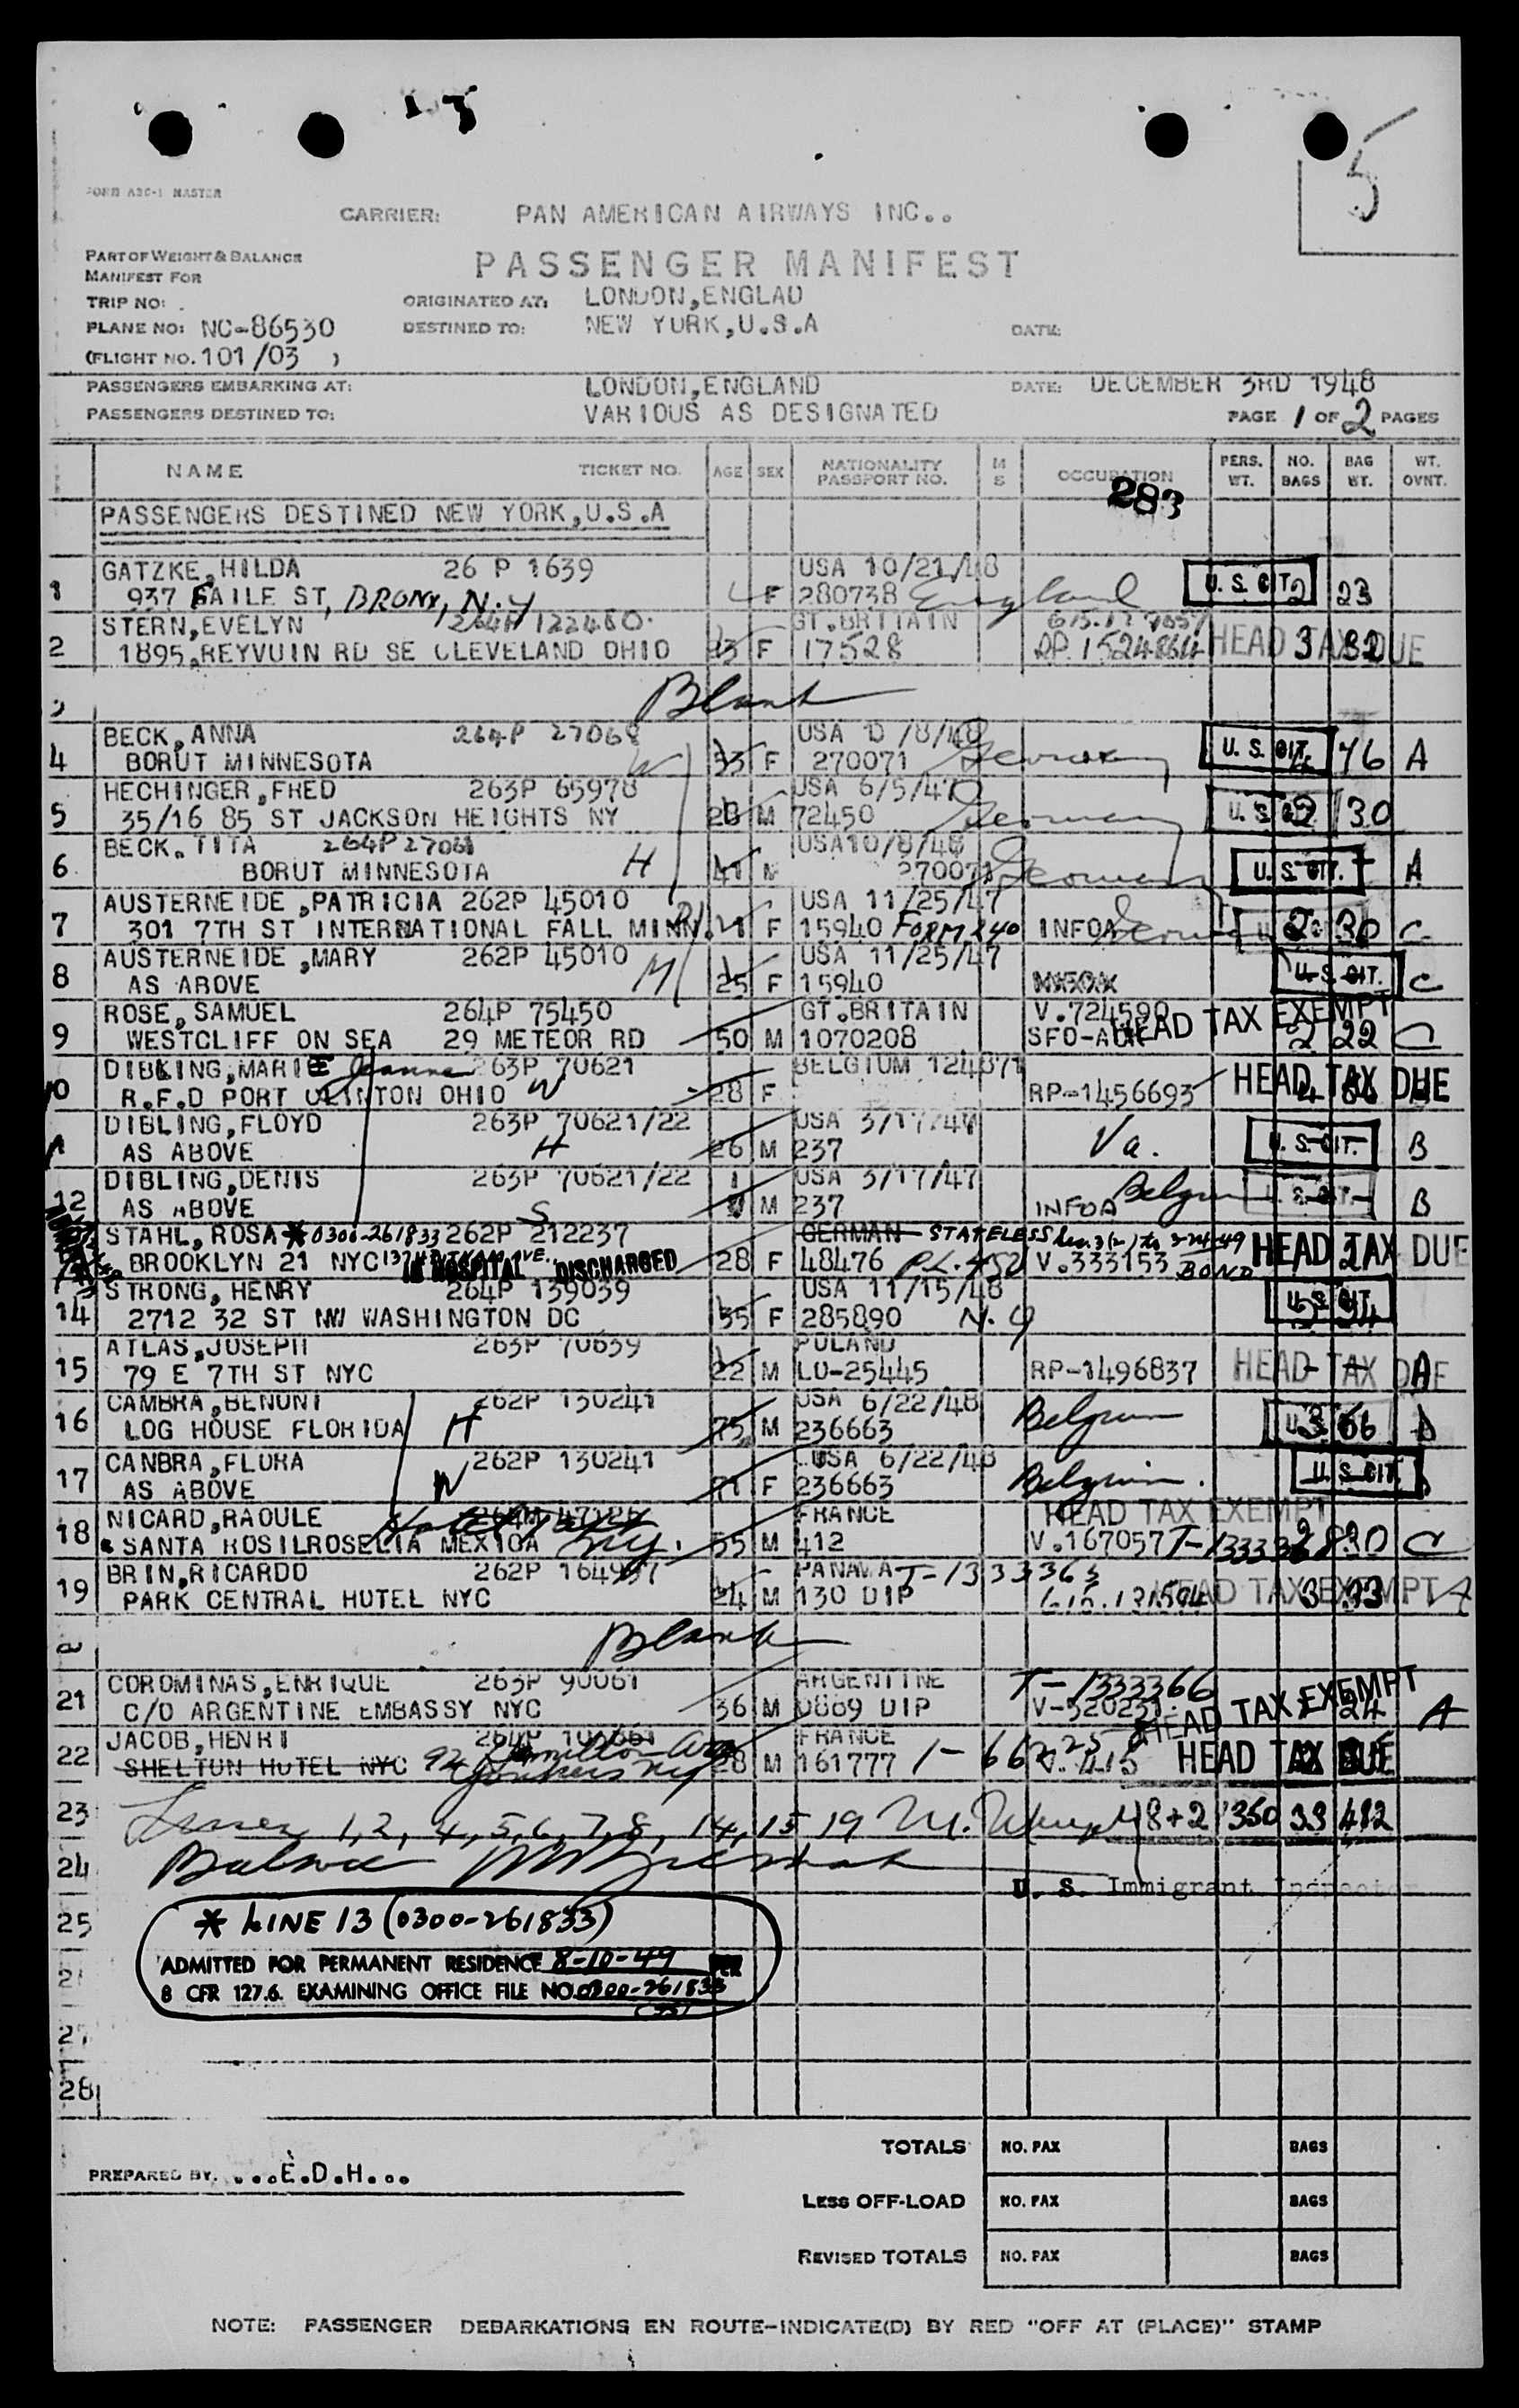 FORM ABC-1 MASTER
5
CARRIER: PAN AMERICAN AIRWAYS INC..
PART OF WEIGHT & BALANCE
MANIFEST FOR
PASSENGER MANIFEST
TRIP NO: ORIGINATED AT: LONDON,ENGLAD
PLANE NO: NC-86530 DESTINED TO: NEW YORK,U.S.A DATE:
(FLIGHT NO. 101/03 )
PASSENGERS EMBARKING AT: LONDON,ENGLAND DATE: DECEMBER 3RD 1948
PASSENGERS DESTINED TO: VARIOUS AS DESIGNATED PAGE 1 OF 2 PAGES
NAME TICKET NO. AGE SEX NATIONALITY PASSPORT NO. M S OCCUPATION PERS. WT. NO. BAGS BAG WT. WT. OVNT.
283
PASSENGERS DESTINED NEW YORK,U.S.A
GATZKE,HILDA 26 P 1639 USA 10/21/48
1 937 FAILE ST, BRONX, N.Y F 280738 England U.S. CIT. 2 23
STERN,EVELYN GT.BRITAIN
2 1895 REYVUIN RD SE CLEVELAND OHIO F 17528 RP.1524864 HEAD TAX DUE 3 32
Blank
BECK,ANNA 264P 27068 USA /8/48
4 BORUT MINNESOTA W 53 F 270071 Germany U. S. CIT. 46 A
HECHINGER,FRED 263P 65978 USA 6/5/47
5 35/16 85 ST JACKSON HEIGHTS NY 28 M 72450 Germany U. S. 2 30
BECK,TITA 264P 27068 USA10/8/48
6 BORUT MINNESOTA H 41 M 270071 Germany U.S. CIT. A
AUSTERNEIDE,PATRICIA 262P 45010 USA 11/25/47
7 301 7TH ST INTERNATIONAL FALL MINN. F 15940 FORM 240 INFOA 2 30 C
AUSTERNEIDE,MARY 262P 45010 USA 11/25/47
8 AS ABOVE M 25 F 15940 U.S. CIT. C
ROSE,SAMUEL 264P 75450 GT.BRITAIN V.724590
9 WESTCLIFF ON SEA 29 METEOR RD 50 M 1070208 HEAD TAX EXEMPT 2 22 C
DIBLING,MARIE Jeanne 263P 70621 BELGIUM 124871
10 R.F.D PORT CLINTON OHIO W 28 F RP-1456693 HEAD TAX DUE
DIBLING,FLOYD 263P 70621/22 USA 3/17/47
AS ABOVE H 26 M 237 Va. U.S. CIT. B
DIBLING,DENIS 263P 70621/22 USA 3/17/47
12 AS ABOVE S M 237 INFOA U.S. CIT. B
STAHL,ROSA * 0300-261833 262P 212237 GERMAN STATELESS
BROOKLYN 21 NYC IN HOSPITAL DISCHARGED 28 F 48476 V.333153 BOND HEAD TAX DUE 2
STRONG, HENRY 264P 139039 USA 11/15/48
14 2712 32 ST NW WASHINGTON DC 35 F 285890 N.Y U.S. CIT.
ATLAS,JOSEPH 263P 70639 POLAND
15 79 E 7TH ST NYC 22 M LO-25445 RP-1496837 HEAD TAX DUE A
CAMBRA,BENONI 262P 130241 USA 6/22/48
16 LOG HOUSE FLORIDA H 75 M 236663 Belgium 3 66
CANBRA,FLORA 262P 130241 USA 6/22/48
17 AS ABOVE W 71 F 236663 Belgium. U. S. CIT.
NICARD,RAOULE FRANCE HEAD TAX EXEMPT
18 SANTA ROSILROSELIA MEXICA N.Y. 55 M 412 V.167057 C
BRIN,RICARDO 262P 164937 PANAMA T-1333365
19 PARK CENTRAL HOTEL NYC 24 M 130 DIP HEAD TAX EXEMPT 3 33 A
Blank
COROMINAS,ENRIQUE 263P 90061 ARGENTINE T-1333366
21 C/O ARGENTINE EMBASSY NYC 36 M 0869 DIP V-320231 HEAD TAX EXEMPT 24 A
JACOB,HENRI FRANCE
22 SHELTON HOTEL NYC 92 Hamilton Ave Yonkers NY 28 M 161777 HEAD TAX DUE
23 1,2, 4,5,6,7,8, 14,15 19 18+2 350 33 482
24 Balance
U. S. Immigrant Inspector
25 * LINE 13 (0300-261833)
ADMITTED FOR PERMANENT RESIDENCE 8-10-49 PER
8 CFR 127.6. EXAMINING OFFICE FILE NO. 0300-261833
27
28
TOTALS NO. PAX BAGS
PREPARED BY. ...E.D.H...
LESS OFF-LOAD NO. PAX BAGS
REVISED TOTALS NO. PAX BAGS
NOTE: PASSENGER DEBARKATIONS EN ROUTE-INDICATE(D) BY RED "OFF AT (PLACE)" STAMP